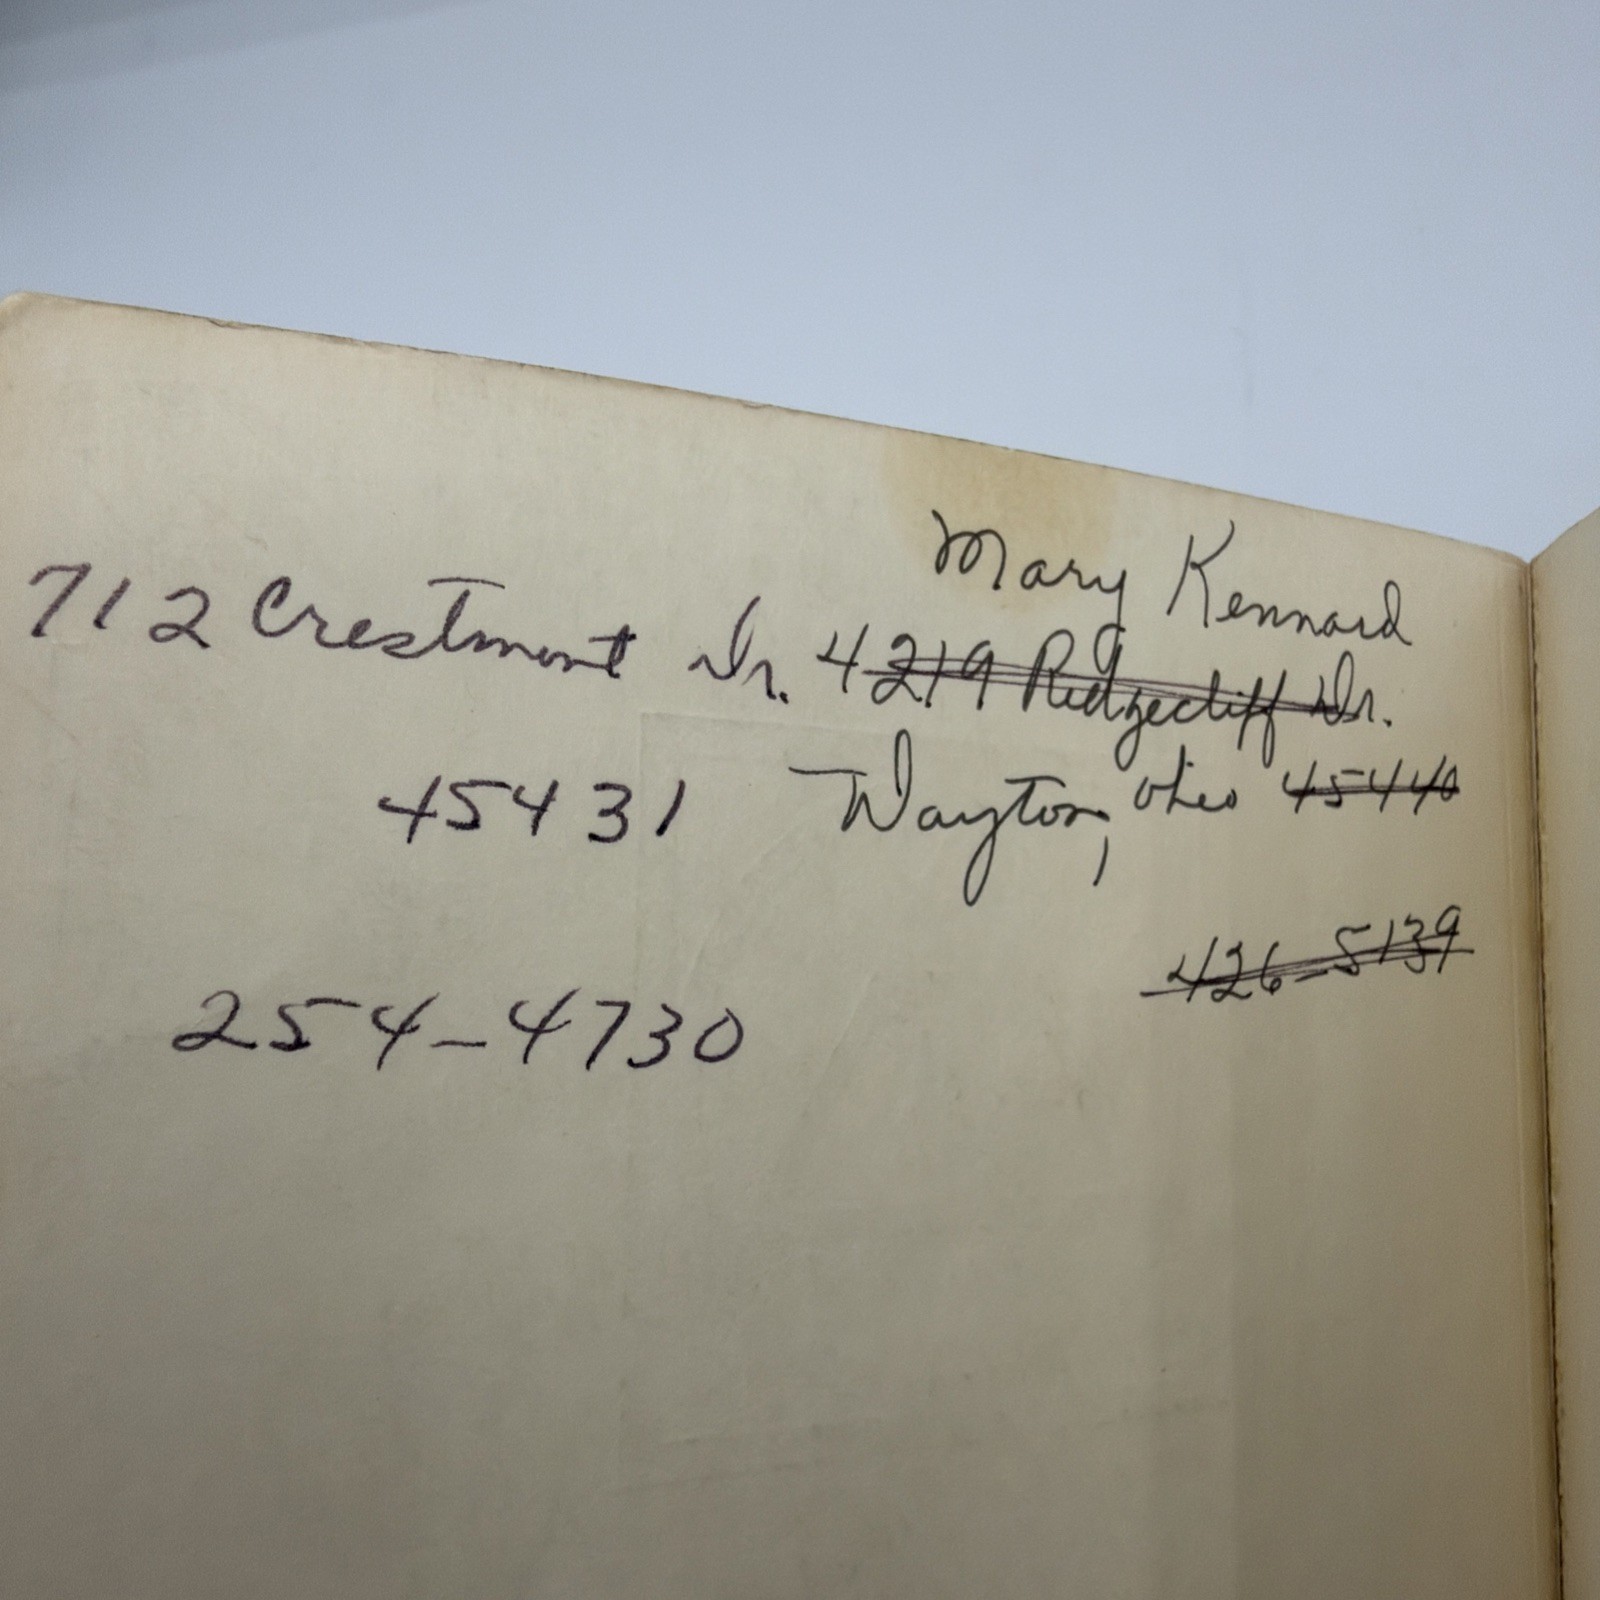 Mary Kennard
712 Crestmont Dr. 4219 Ridgecliff Dr.
45431 Dayton, Ohio 45440
426-5139
254-4730